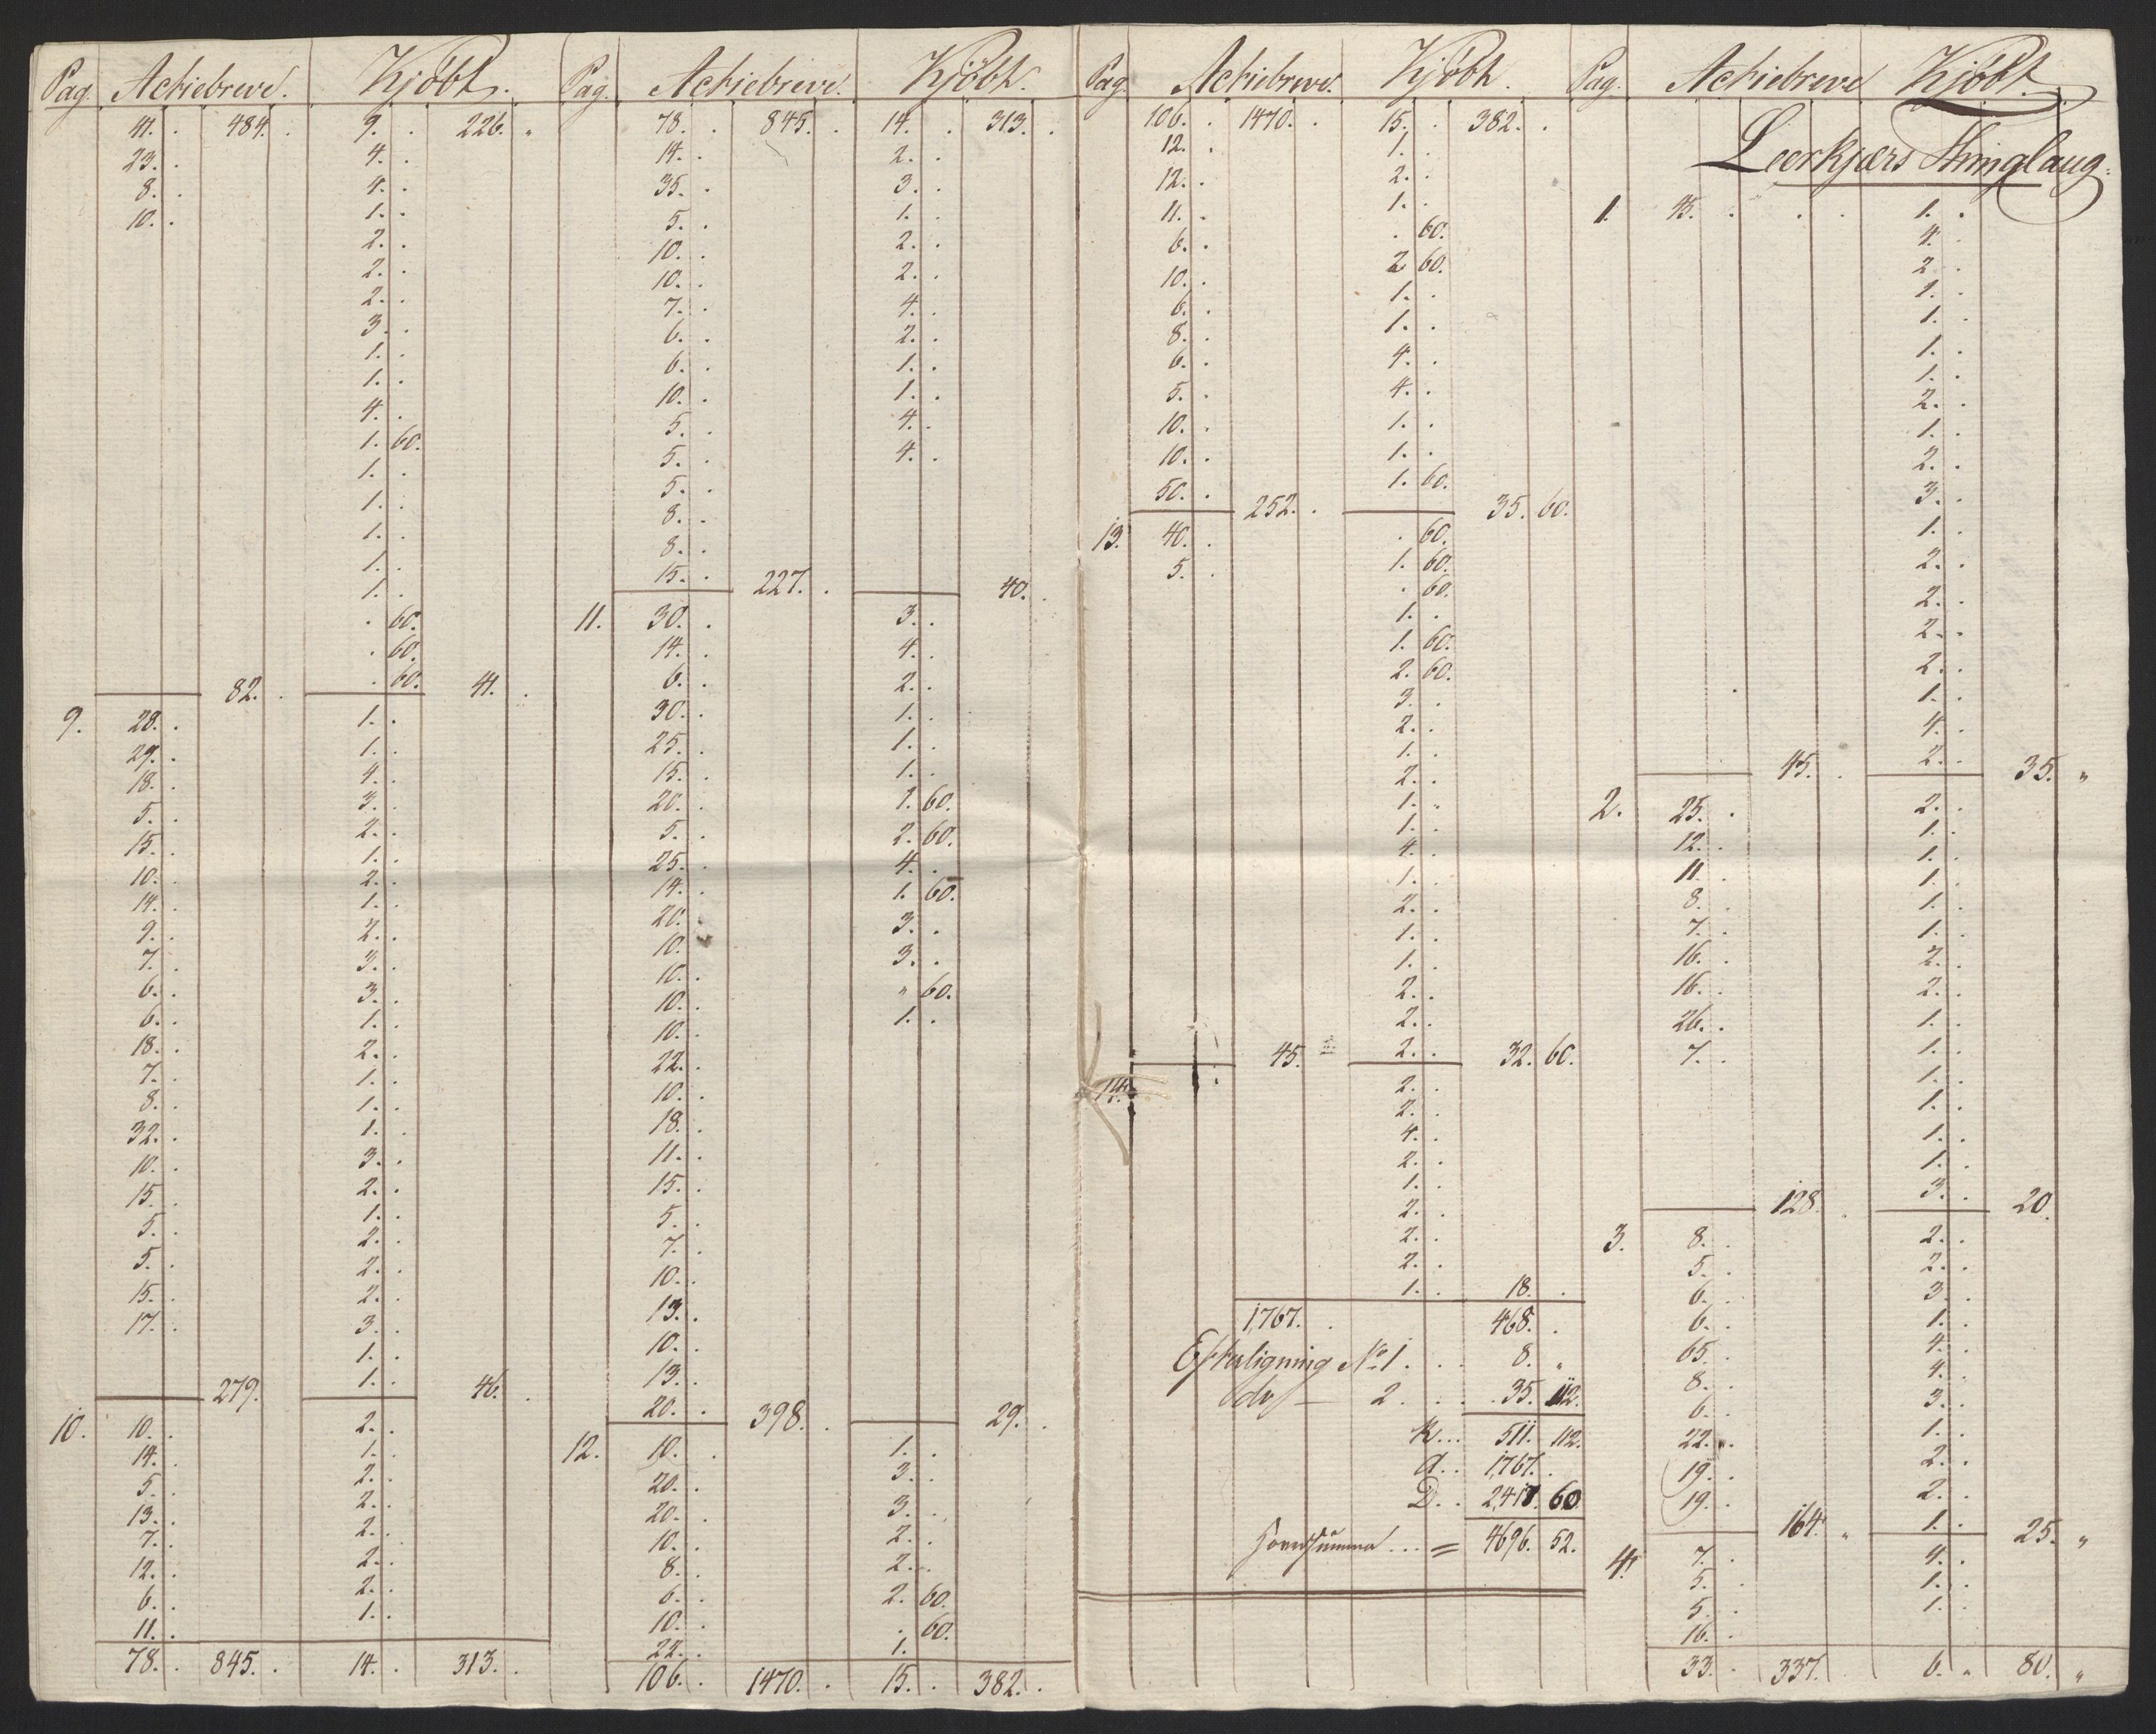 Pag. Actiebreve. Kjöbt.
41. . 484. . 9. . 226. „
23. . 4. .
8. . 4. .
10. . 1. .
2. .
2. .
2. .
3. .
1. .
1. .
4. .
1. 60.
1. .
1. .
1. .
1. .
1. .
. 60.
. 60.
. 60.
82. . 41. .
9. 28. . 1. .
29. . 1. .
18. . 4. .
5. . 3. .
15. . 2. .
10. . 1. .
14. . 2. .
9. . 1. .
7. . 2. .
6. . 3. .
6. . 3. .
18. . 1. .
7. . 2. .
8. . 1. .
32. . 1. .
10. . 1. .
15. . 3. .
5. . 2. .
5. . 1. .
15. . 2. .
17. . 2. .
2. .
3. .
1. .
1. .
279. 46. .
10. 10. . 2. .
14. . 1. .
5. . 2. .
13. . 2. .
7. . 2. .
12. . 2. .
6. . 2. .
11. . 1. .
78. . 845. . 14. . 313. .
Pag. Actiebreve. Kjöbt.
78. . 845. . 14. . 313. .
14. . 2. .
35. . 3. .
5. . 1. .
10. . 2. .
10. . 2. .
7. . 4. .
6. . 2. .
6. . 1. .
10. . 1. .
5. . 4. .
5. . 4. .
5. .
8. .
8. .
15. . 227. . 40. .
11. 30. . 3. .
14. . 4. .
6. . 2. .
30. . 1. .
25. . 1. .
15. . 1. .
20. . 1. 60.
5. . 2. 60.
25. . 4. .
14. . 1. 60.
20. . 3. .
10. . 3. .
10. . „ 60.
10. . 1. .
10. .
22. .
10. .
18. .
11. .
15. .
5. .
7. .
10. .
13. .
10. .
13. .
20. . 398. . 29. .
12. 10. . 1. .
20. . 3. .
20. . 3. .
10. . 2. .
8. . 2. .
6. . 2. 60.
10. . . 60.
22. . 1.
106. . 1470. . 15. . 382. .
Pag. Actiebreve. Kjöbt.
106. . 1470. . 15. . 382. .
12. . 1. .
12. . 2. .
11. . 1. .
6. . . 60.
10. . 2 60.
6. . 1. .
8. . 1. .
6. . 4. .
5. . 4. .
10. . 1. .
10. . 1. .
50. . 1. 60.
252. . 35. 60.
13. 40. . . 60.
5. . 1. 60.
. 60.
1. .
1. 60.
2. 60.
3. .
2. .
1. .
2. .
1. .
1. .
4. .
1. .
2. .
1. .
1. .
2. .
2. .
2. .
45. 32. 60.
14. 2. .
2. .
4. .
2. .
1. .
2. .
2. .
2. .
1. . 18. .
1,767. . 468. .
Efterligning No 1. . . 8. „
do — 2. . . 35. 112.
K... 511. 112.
A.. 1,767. .
D.. 2,417. 60
= 4696. 52.
Pag. Actiebreve Kjöbt.
Leerkjærs Thinglaug.
1. 45. . . . 1. .
4. .
2 .
1. .
1. .
1. .
1. .
2. .
1. .
2. .
3. .
1. .
2. .
2. .
2. .
2. .
1. .
4. .
2. .
45. . 35. „
2. 25. . 2. .
12. . 1. .
11. . 1. .
8. . 1. .
7. . 1. .
16. . 1. .
16. . 2. .
26. . 2. .
7. . 1. .
1. .
1. .
1. .
1. .
1. .
3. .
128. . 20.
3. 8. . 2. .
5. . 2. .
6. . 3. .
6. . 1. .
65. . 4. .
8. . 4. .
6. . 3. .
22. . 1. .
19. . 2. .
19. . 2. .
1. .
164. „ 25. „
4. 7. . 4. .
5. . 1. .
5. . 1. .
16. .
33. . 337. . 6. „ 80. „